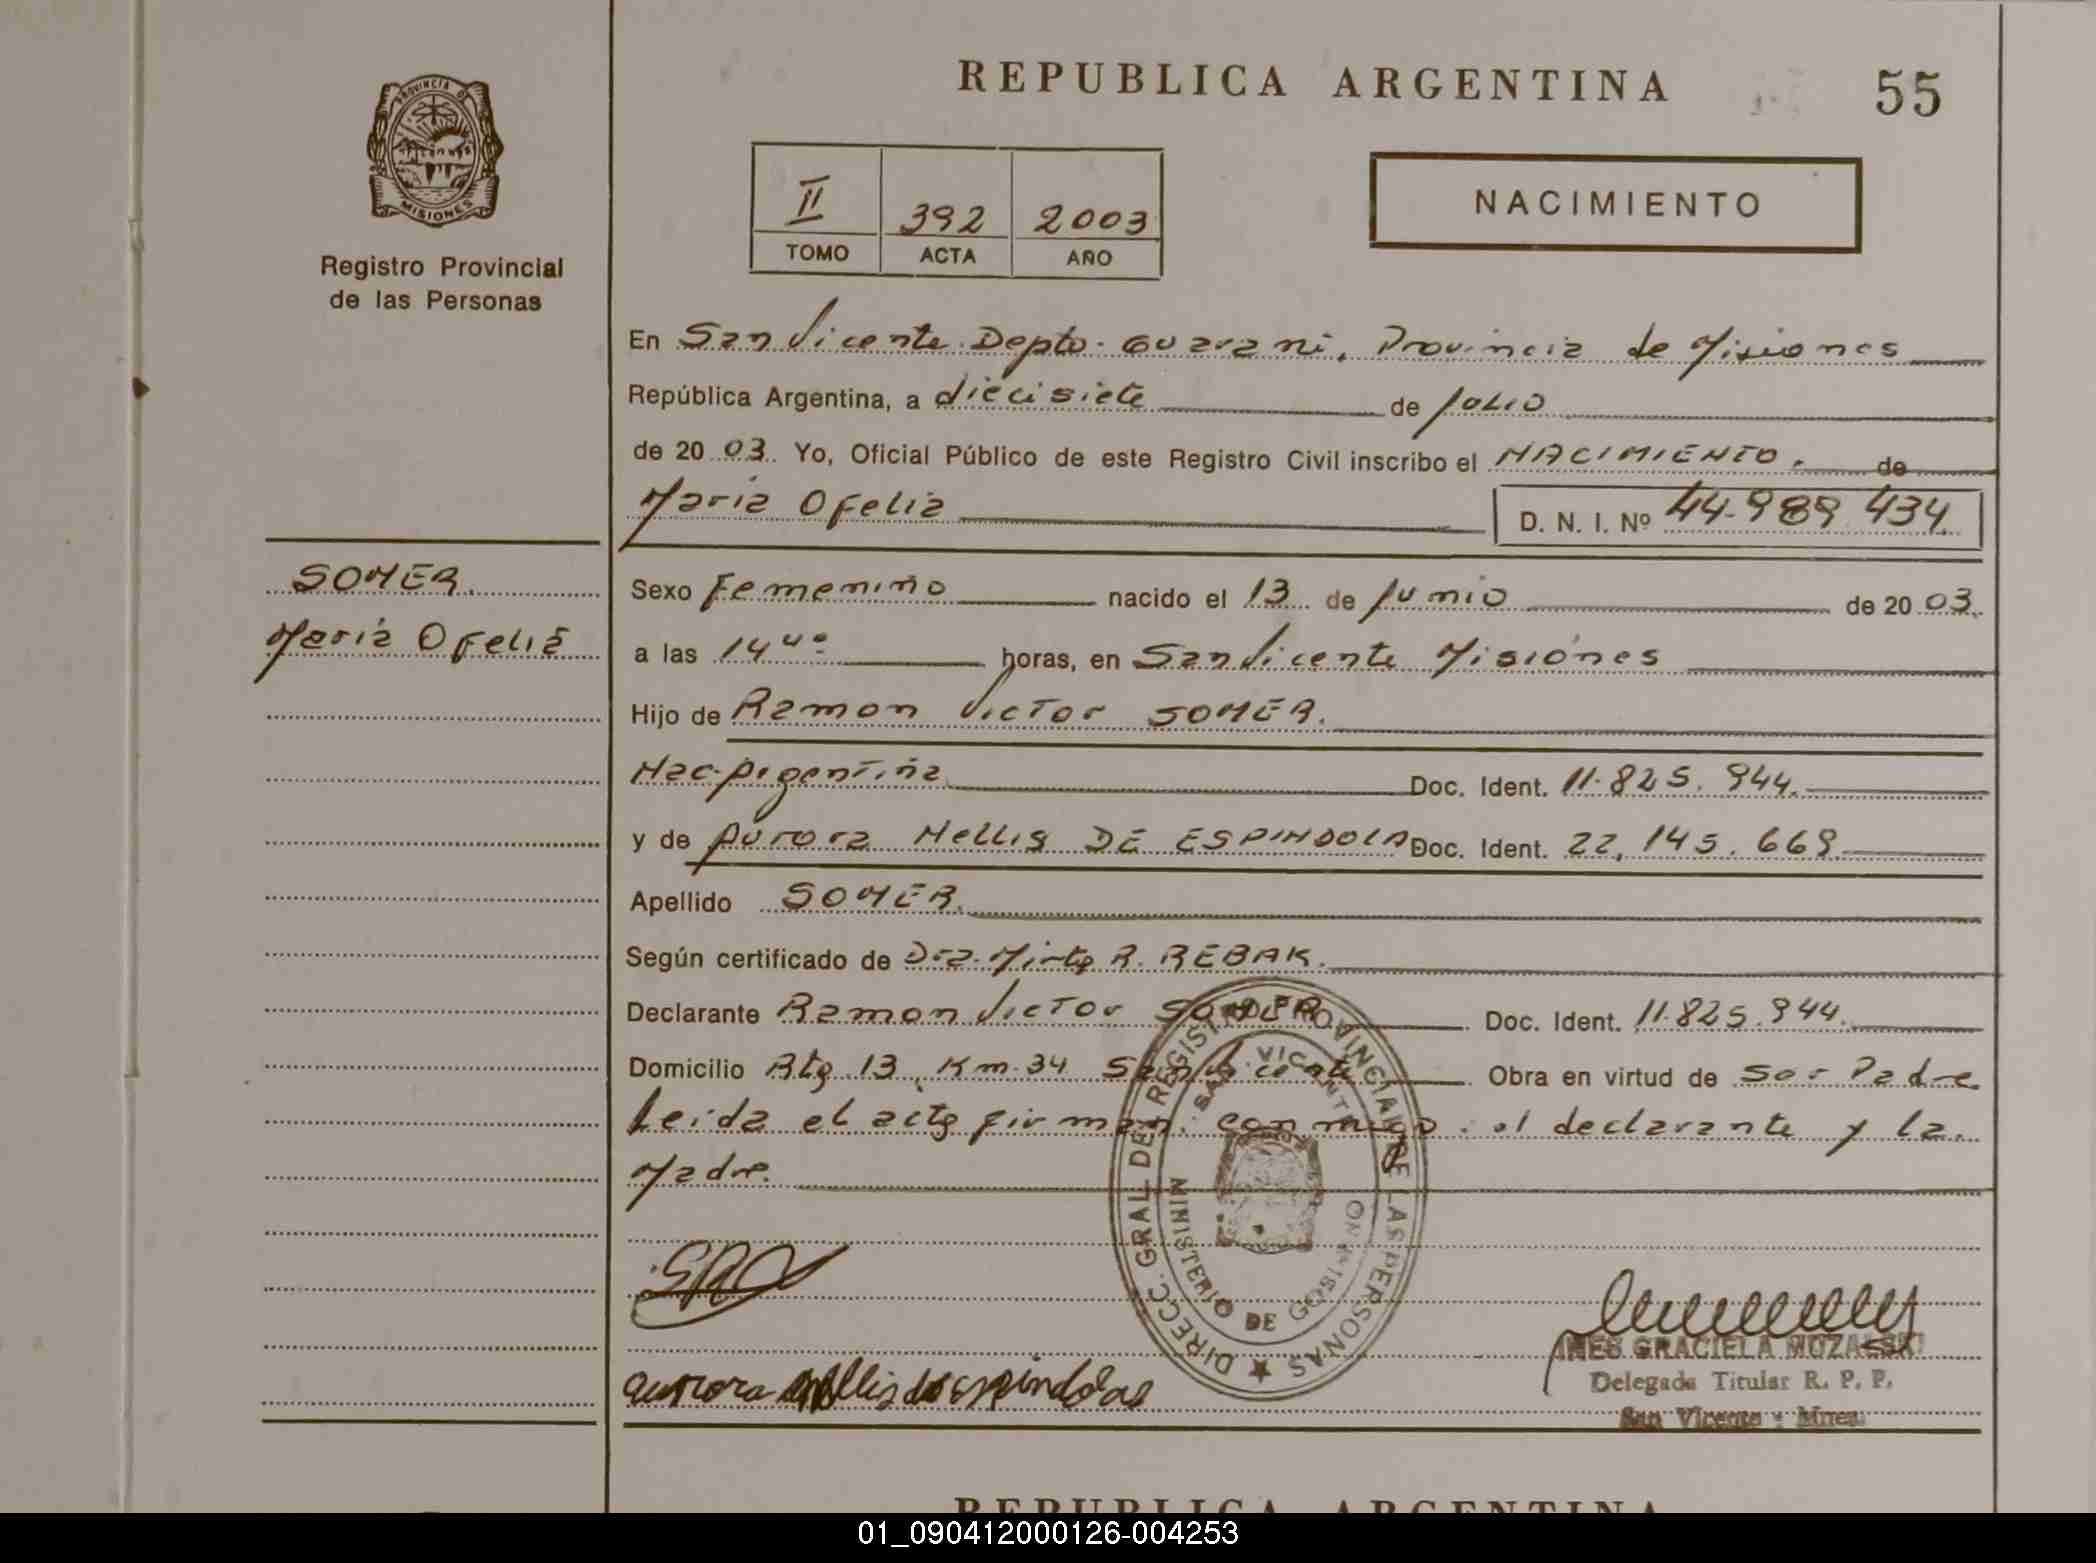 REPUBLICA ARGENTINA
55
PROVINCIA DE
MISIONES
Registro Provincial
de las Personas
II 392 2003
TOMO ACTA AÑO
NACIMIENTO
En San Vicente Depto. Guarani, Provincia de Misiones
República Argentina, a diecisiete de Julio
de 2003. Yo, Oficial Público de este Registro Civil inscribo el NACIMIENTO. de
Maria Ofelia D. N. I. Nº 44.989.434
SOMER.
Maria Ofelia
Sexo Femenino nacido el 13 de Junio de 2003.
a las 14 40 horas, en San Vicente Misiones
Hijo de Ramon Victor SOMER.
Nac. Argentina Doc. Ident. 11.825.944.
y de Aurora Nellis DE ESPINDOLA Doc. Ident. 22.145.669
Apellido SOMER.
Según certificado de Dra. Mirta R. REBAK.
Declarante Ramon Victor SOMER Doc. Ident. 11.825.944.
Domicilio Rta 13 Km. 34 San Vicente Obra en virtud de Ser Padre
Leida el acta firman conmigo el declarante y la
Madre.
DIRECC. GRAL DEL REGISTRO PROVINCIAL DE LAS PERSONAS
SAN VICENTE
MINISTERIO DE GOBIERNO
Aurora Nellis de espindola
INES GRACIELA MUZALSKI
Delegada Titular R. P. P.
San Vicente - Mnes.
REPUBLICA ARGENTINA
01_090412000126-004253